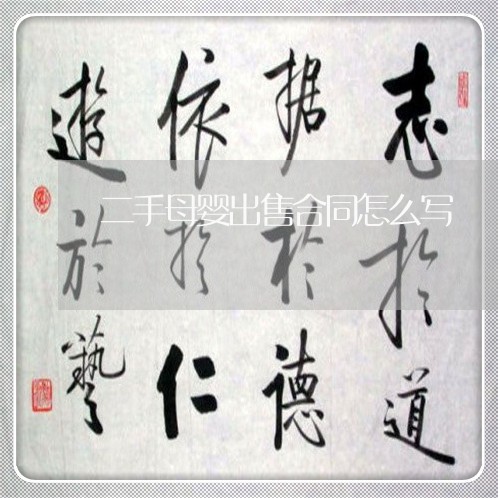 志於道
据於德
依於仁
遊於藝
二手母婴出售合同怎么写